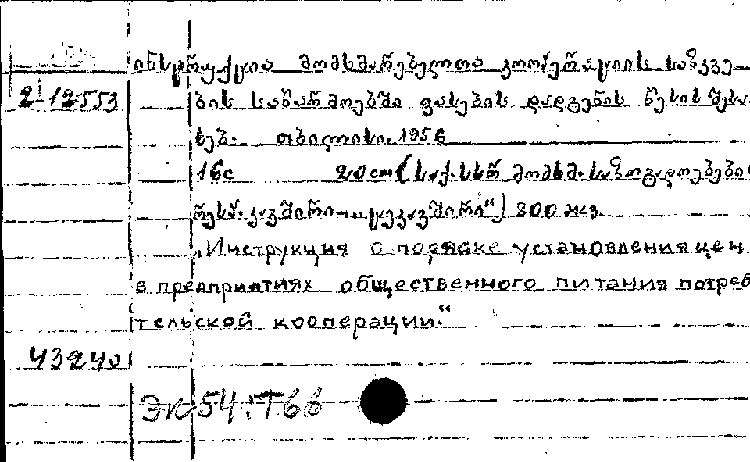 ინსტრუქცია მომხმარებელთა კოოპერაციის საზ.კვე-
2-12553 ბის საწარმოებში ფასების დადგენის წესის შესა-
ხებ. თბილისი. 1956
16с 20 cm (საქ.სსრ მომხმ. საზოგადოებები
რესპ. კავშირი—„ცეკავშირი“) 800 ც.
„Инструкция о порядке установления цен
в предприятиях общественного питания потреб
тельской кооперации.“
43240
ЭК 54:Т6в